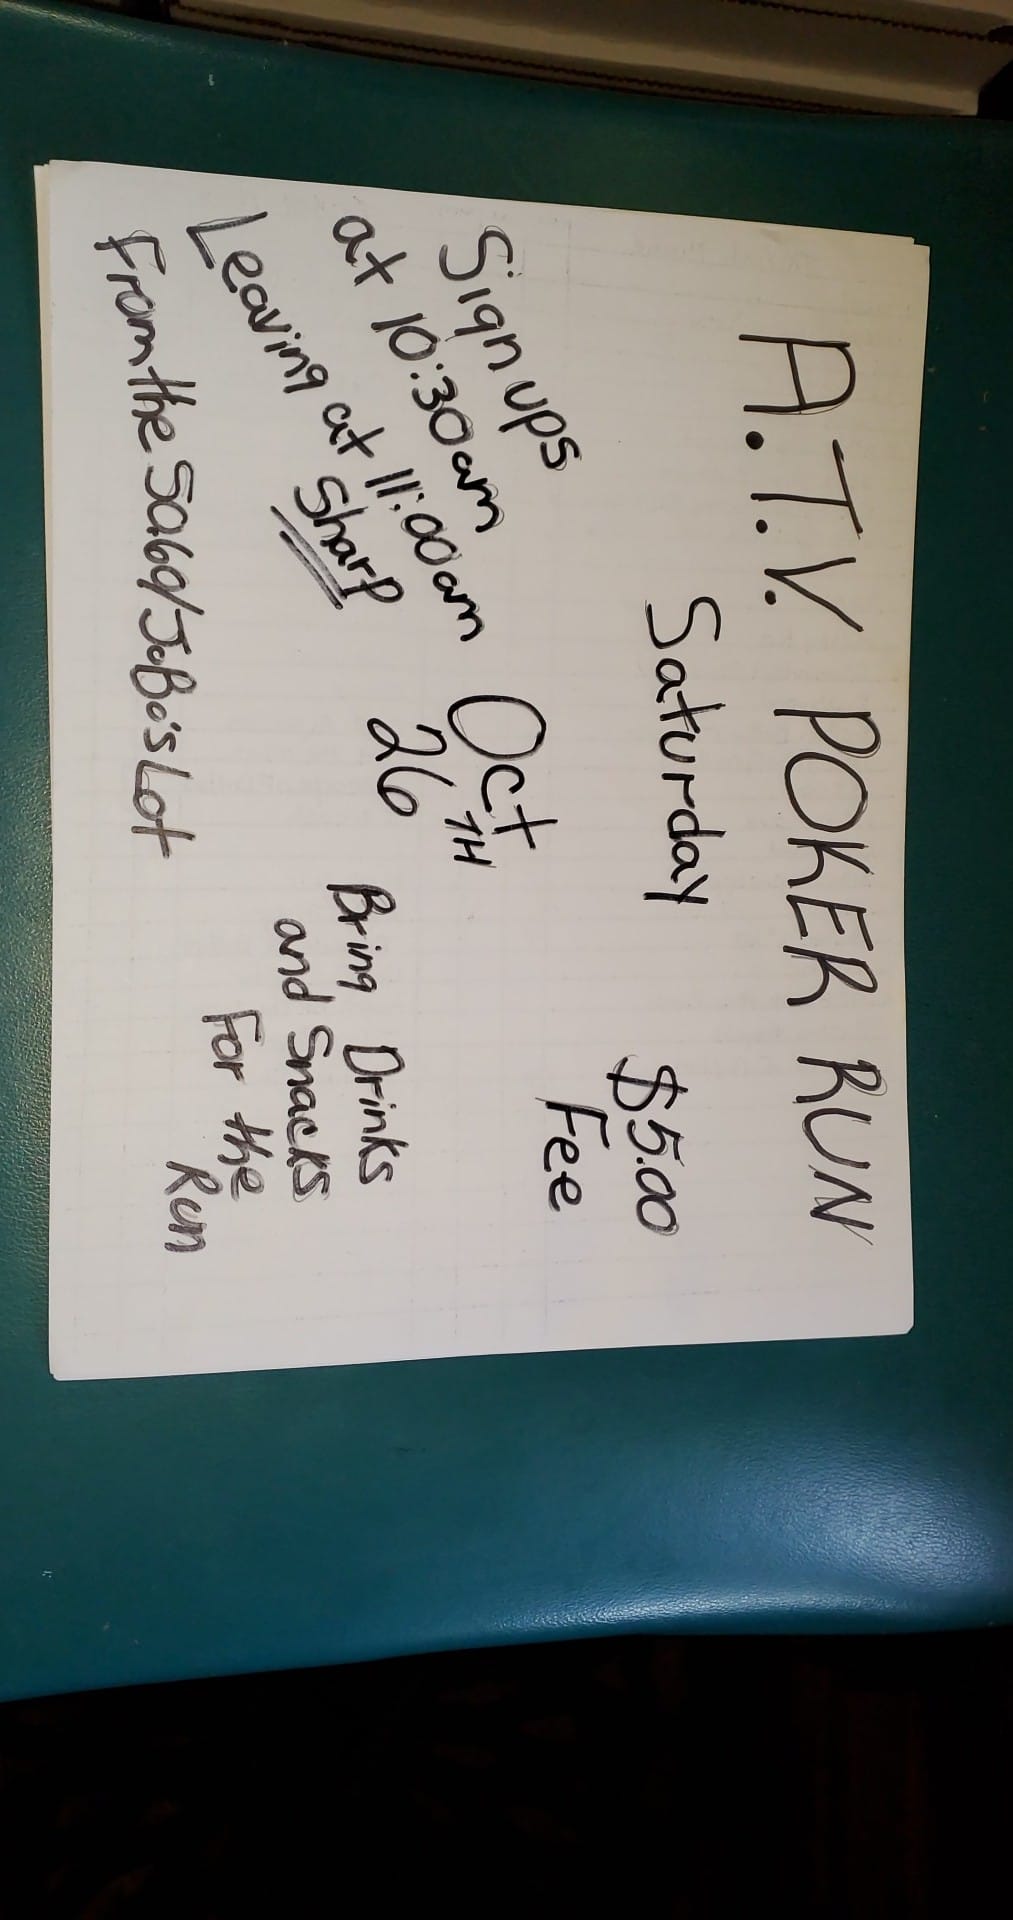 A.T.V. POKER RUN
Saturday
$5.00
Fee
Sign ups
at 10:30am
Leaving at 11:00am
Sharp
Oct
26TH
Bring Drinks
and Snacks
For the
Run
From the Saba/JoBo's Lot